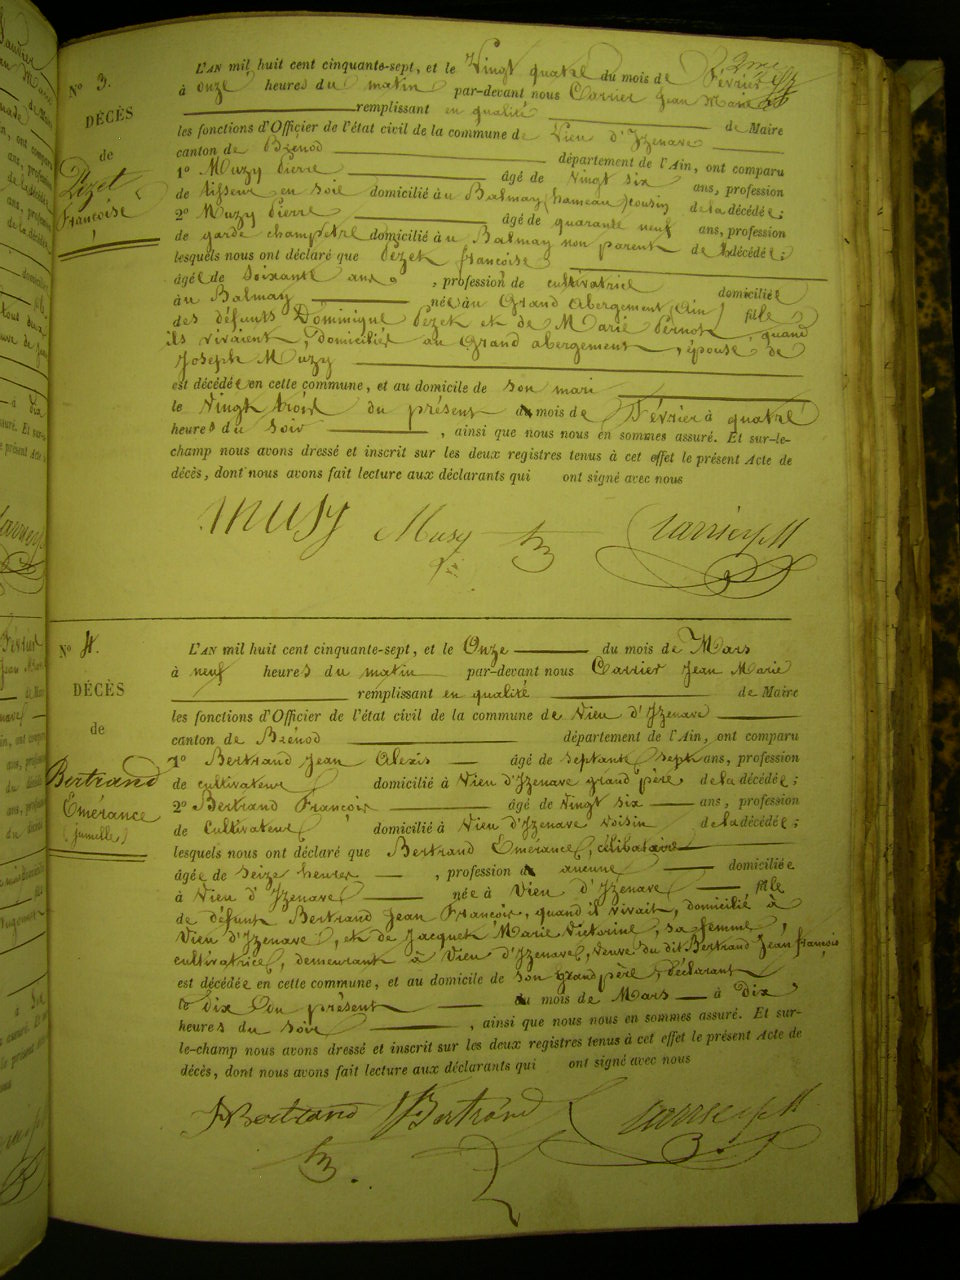 2me
N° 3.
DÉCÈS
de
Pézet
Françoise
L'AN mil huit cent cinquante-sept, et le Vingt quatre du mois de Février
à onze heures du matin par-devant nous Carrier Jean Marie
remplissant en qualité de Maire
les fonctions d'Officier de l'état civil de la commune de Vieu d'Izenave
canton de Brénod département de l'Ain, ont comparu
1° Muzy Pierre âgé de vingt six ans, profession
de tisseur en soie domicilié àu Balmay (hameau) cousin de la décédée;
2° Muzy Pierre âgé de quarante neuf ans, profession
de garde champêtre domicilié àu Balmay non parent de la décédée;
lesquels nous ont déclaré que Pézet françoise
âgée de soixante ans, profession de cultivatrice domiciliée
àu Balmay née àu Grand Abergement (Ain) fille
des défunts Dominique Pézet et de Marie Pernot, quand
ils vivaient, domiciliés au Grand abergement, épouse de
Joseph Muzy
est décédée en cette commune, et au domicile de son mari
le Vingt trois du présent mois de Février à quatre
heures du soir, ainsi que nous nous en sommes assuré. Et sur-le-
champ nous avons dressé et inscrit sur les deux registres tenus à cet effet le présent Acte de
décès, dont nous avons fait lecture aux déclarants qui ont signé avec nous
Musy Musy Carrier J M
N° 4.
DÉCÈS
de
Bertrand
Émérance
(jumelle)
L'AN mil huit cent cinquante-sept, et le Onze du mois de Mars
à neuf heures du matin par-devant nous Carrier Jean Marie
remplissant en qualité de Maire
les fonctions d'Officier de l'état civil de la commune de Vieu d'Izenave
canton de Brénod département de l'Ain, ont comparu
1° Bertrand Jean Alexis âgé de septante sept ans, profession
de cultivateur domicilié à Vieu d'Izenave grand père de la décédée;
2° Bertrand François âgé de Vingt six ans, profession
de Cultivateur domicilié à Vieu d'Izenave voisin de la décédée;
lesquels nous ont déclaré que Bertrand Émérance, célibataire
âgée de seize heures, profession aucune domiciliée
à Vieu d'Izenave née à Vieu d'Izenave, fille
de défunt Bertrand Jean François, quand il vivait, domicilié à
Vieu d'Izenave, et de Jacquet Marie Victorine, sa femme,
cultivatrice, demeurant à Vieu d'Izenave, veuve du dit Bertrand Jean françois
est décédée en cette commune, et au domicile de son grand père déclarant
le dix du présent mois de Mars à dix
heures du soir, ainsi que nous nous en sommes assuré. Et sur-
le-champ nous avons dressé et inscrit sur les deux registres tenus à cet effet le présent Acte de
décès, dont nous avons fait lecture aux déclarants qui ont signé avec nous
Bertrand Bertrand Carrier J M